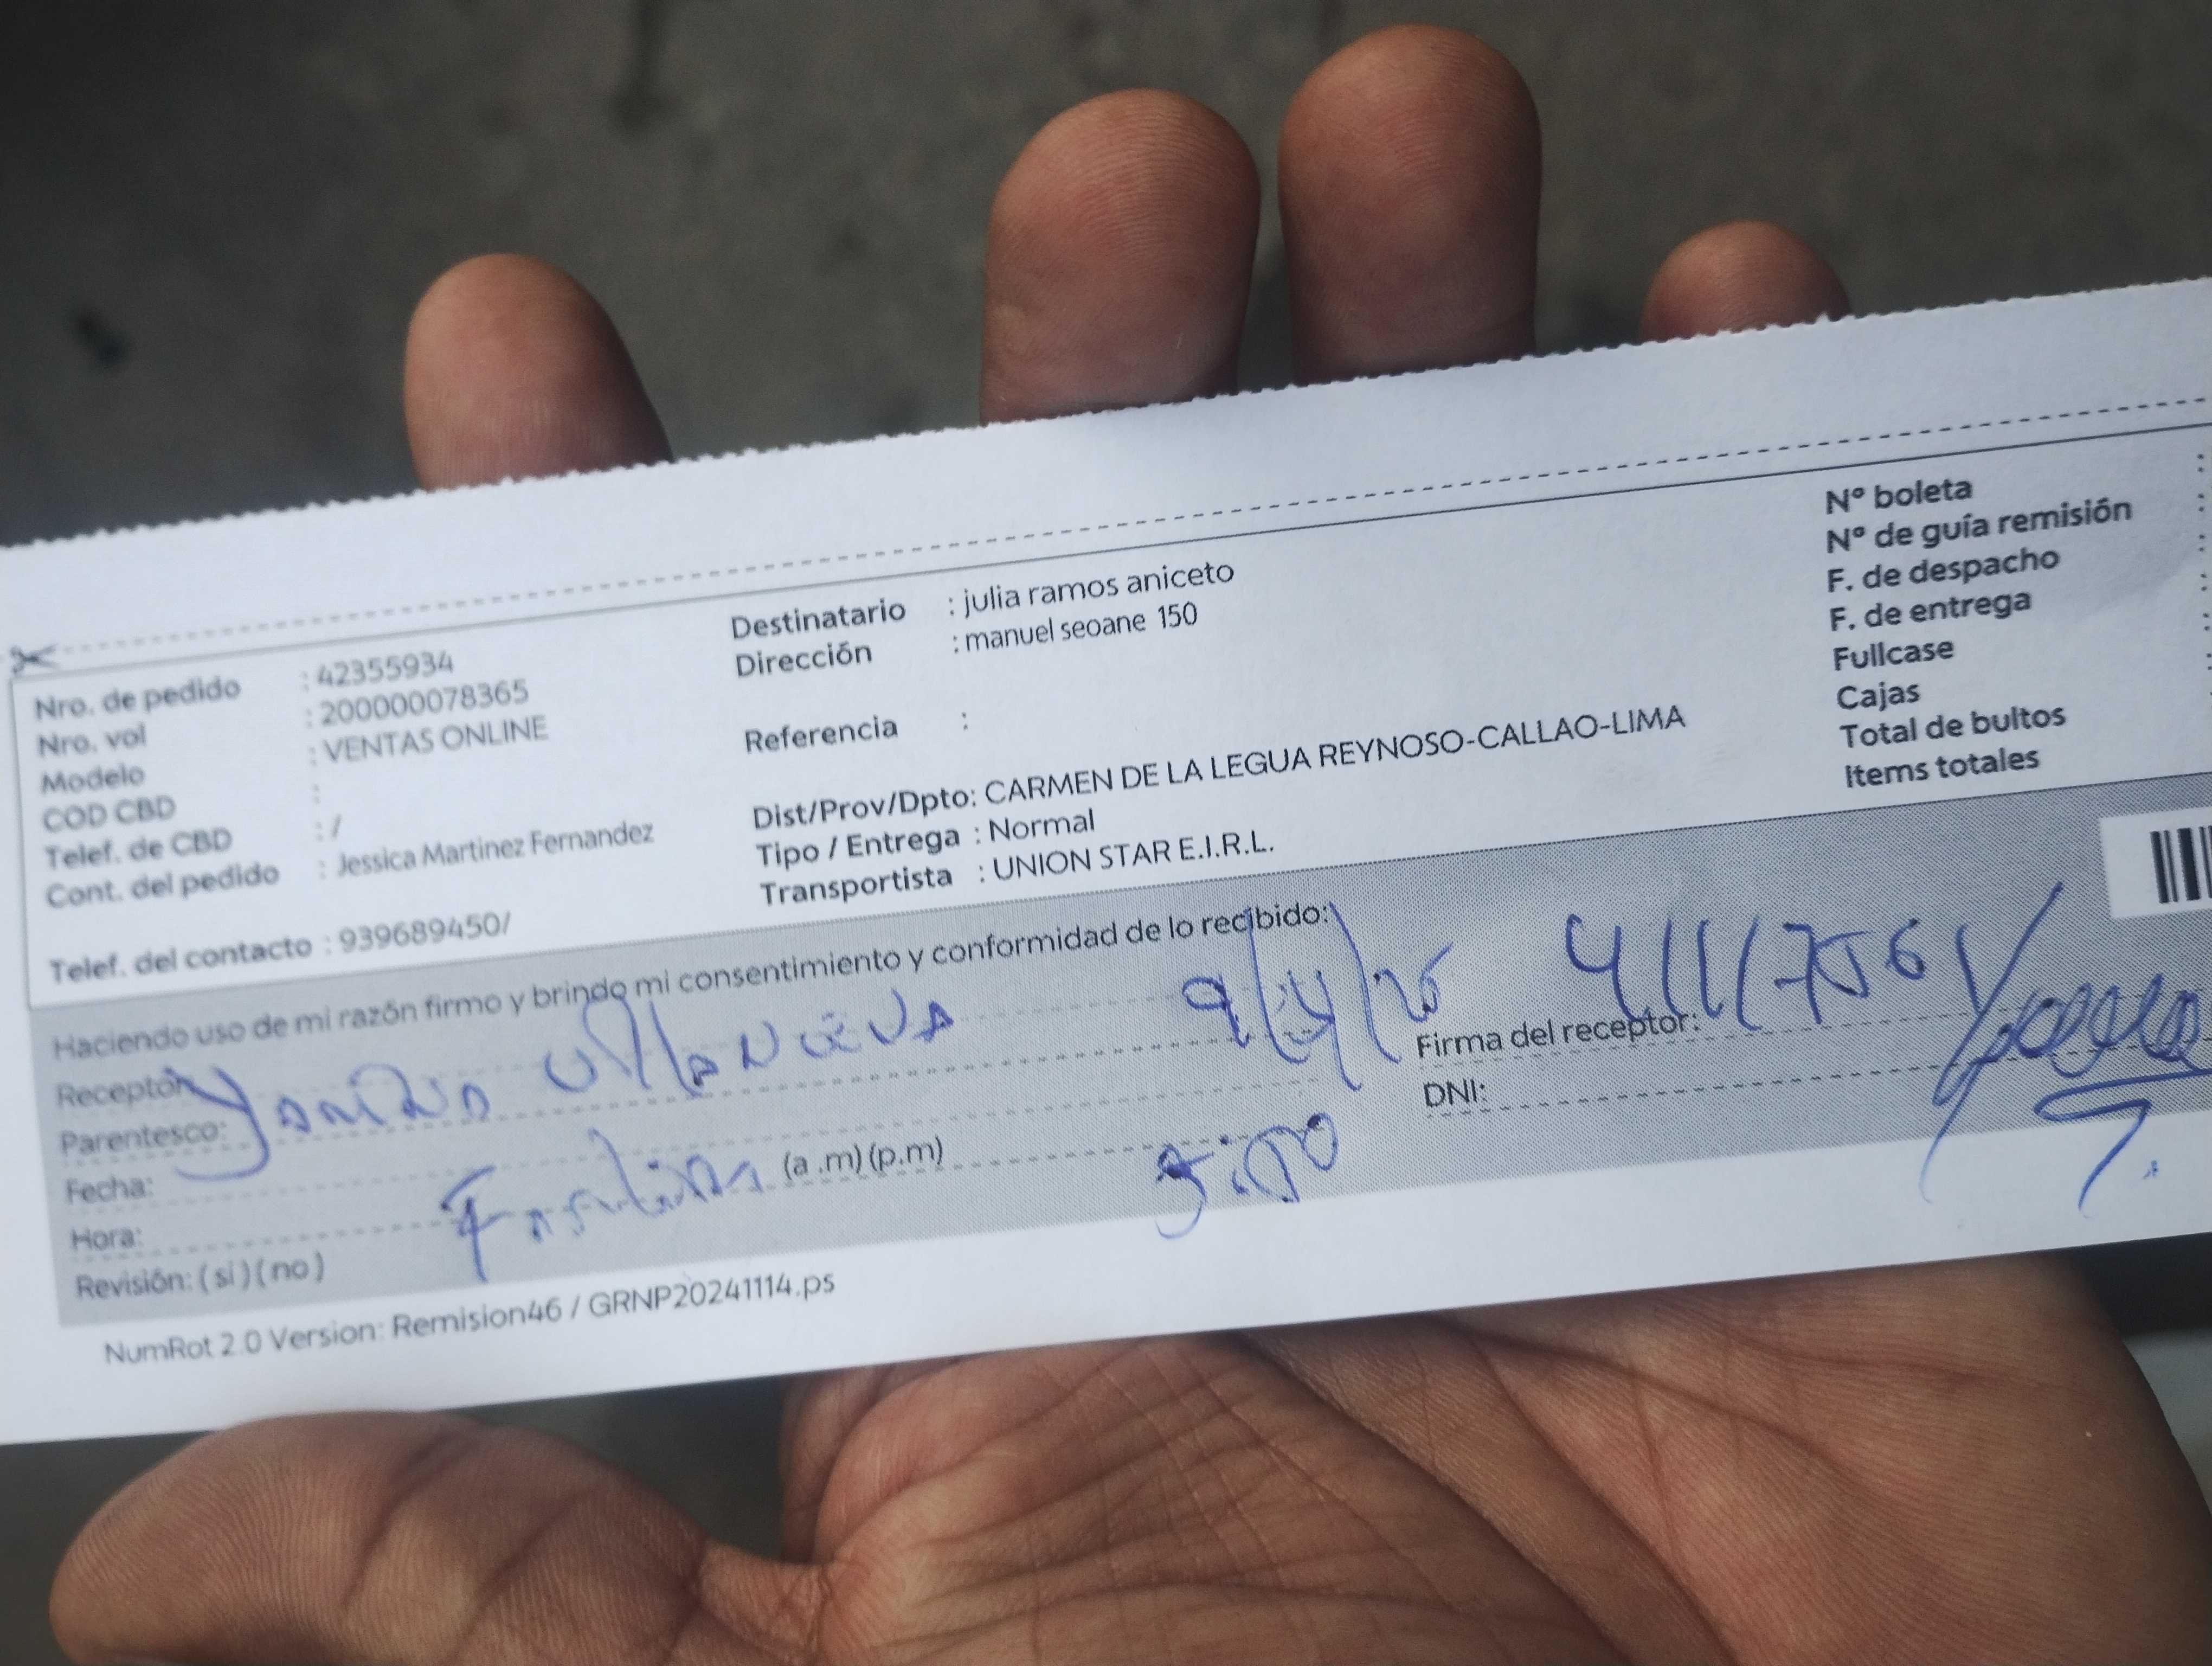 Nro. de pedido : 42355934
Nro. vol : 200000078365
Modelo : VENTAS ONLINE
COD CBD :
Telef. de CBD : /
Cont. del pedido : Jessica Martinez Fernandez
Telef. del contacto : 939689450/
Destinatario : julia ramos aniceto
Dirección : manuel seoane 150
Referencia :
Dist/Prov/Dpto: CARMEN DE LA LEGUA REYNOSO-CALLAO-LIMA
Tipo / Entrega : Normal
Transportista : UNION STAR E.I.R.L.
Nº boleta :
Nº de guía remisión :
F. de despacho :
F. de entrega :
Fullcase :
Cajas :
Total de bultos
Items totales
Haciendo uso de mi razón firmo y brindo mi consentimiento y conformidad de lo recibido:
Receptor:
Parentesco:
Fecha:
Hora: (a .m) (p.m)
Revisión: ( si ) ( no )
Firma del receptor:
DNI:
NumRot 2.0 Version: Remision46 / GRNP20241114.ps